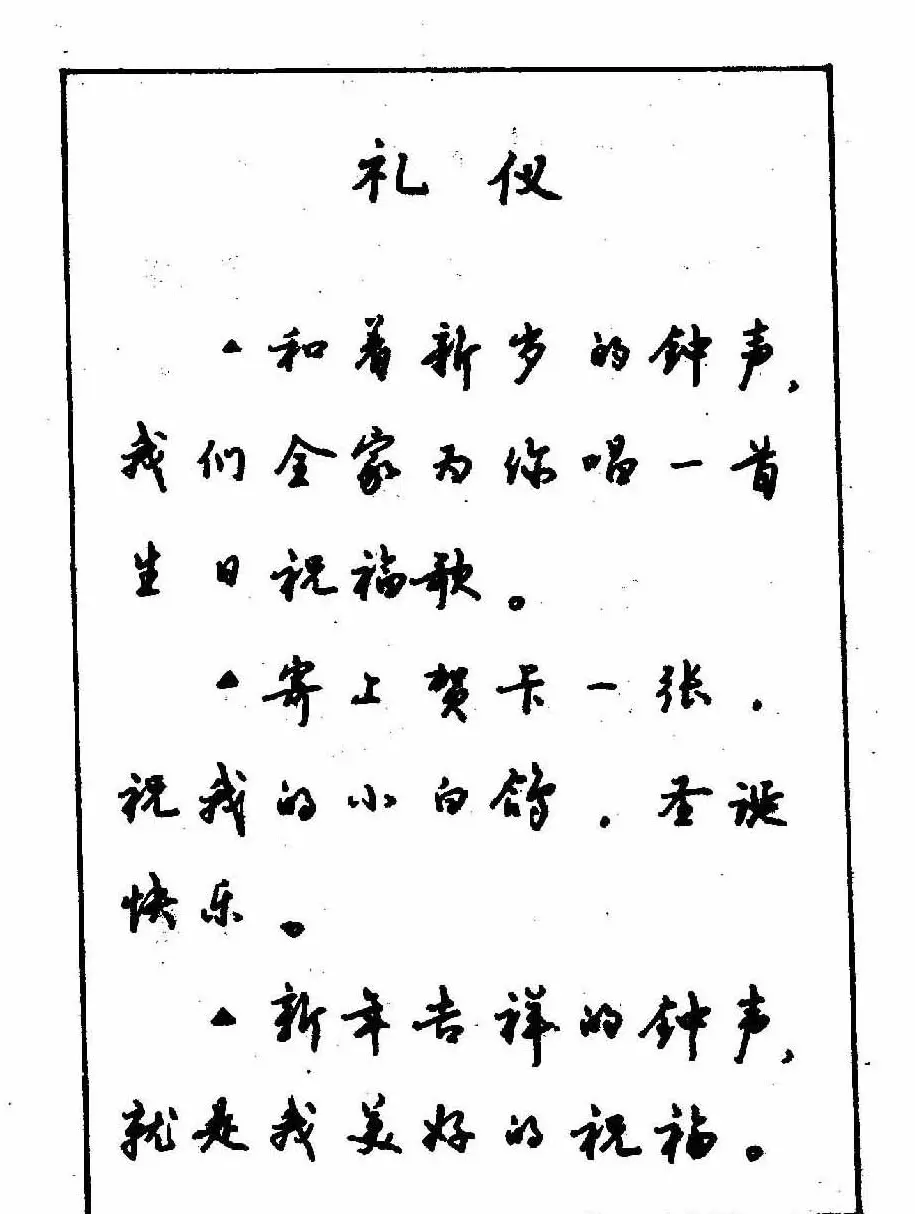 礼仪
▲和着新岁的钟声,
我们全家为你唱一首
生日祝福歌。
▲寄上贺卡一张,
祝我的小白鸽,圣诞
快乐。
▲新年吉祥的钟声,
就是我美好的祝福。